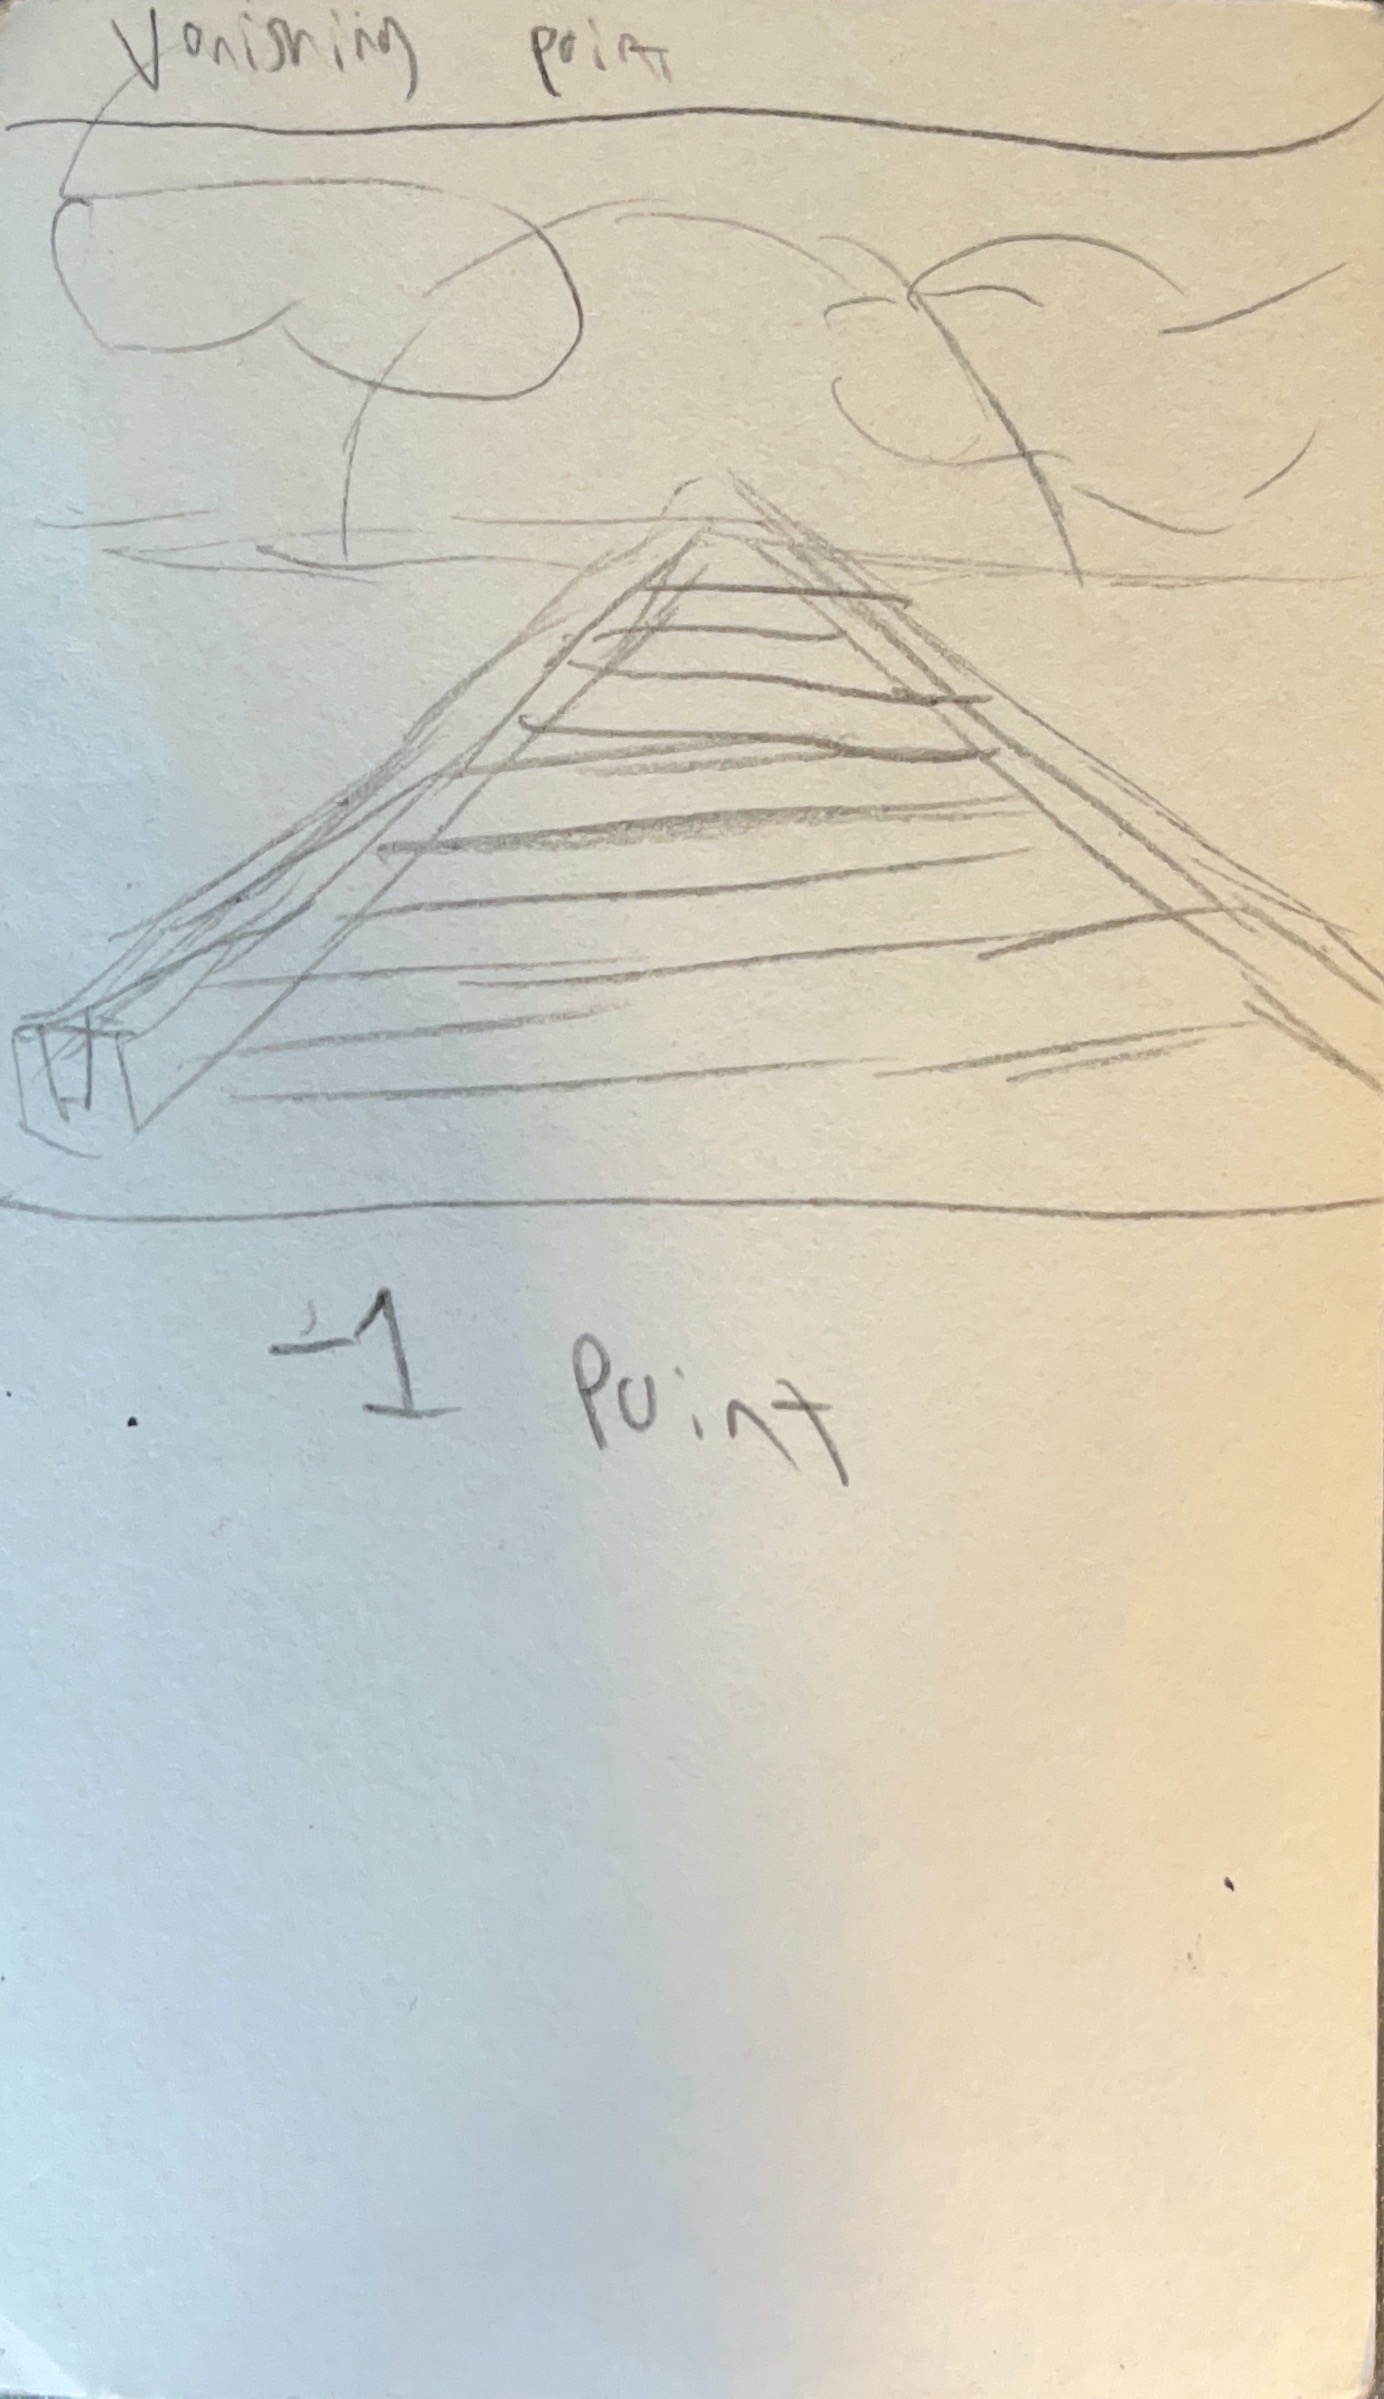 Vanishing point
-1 Point